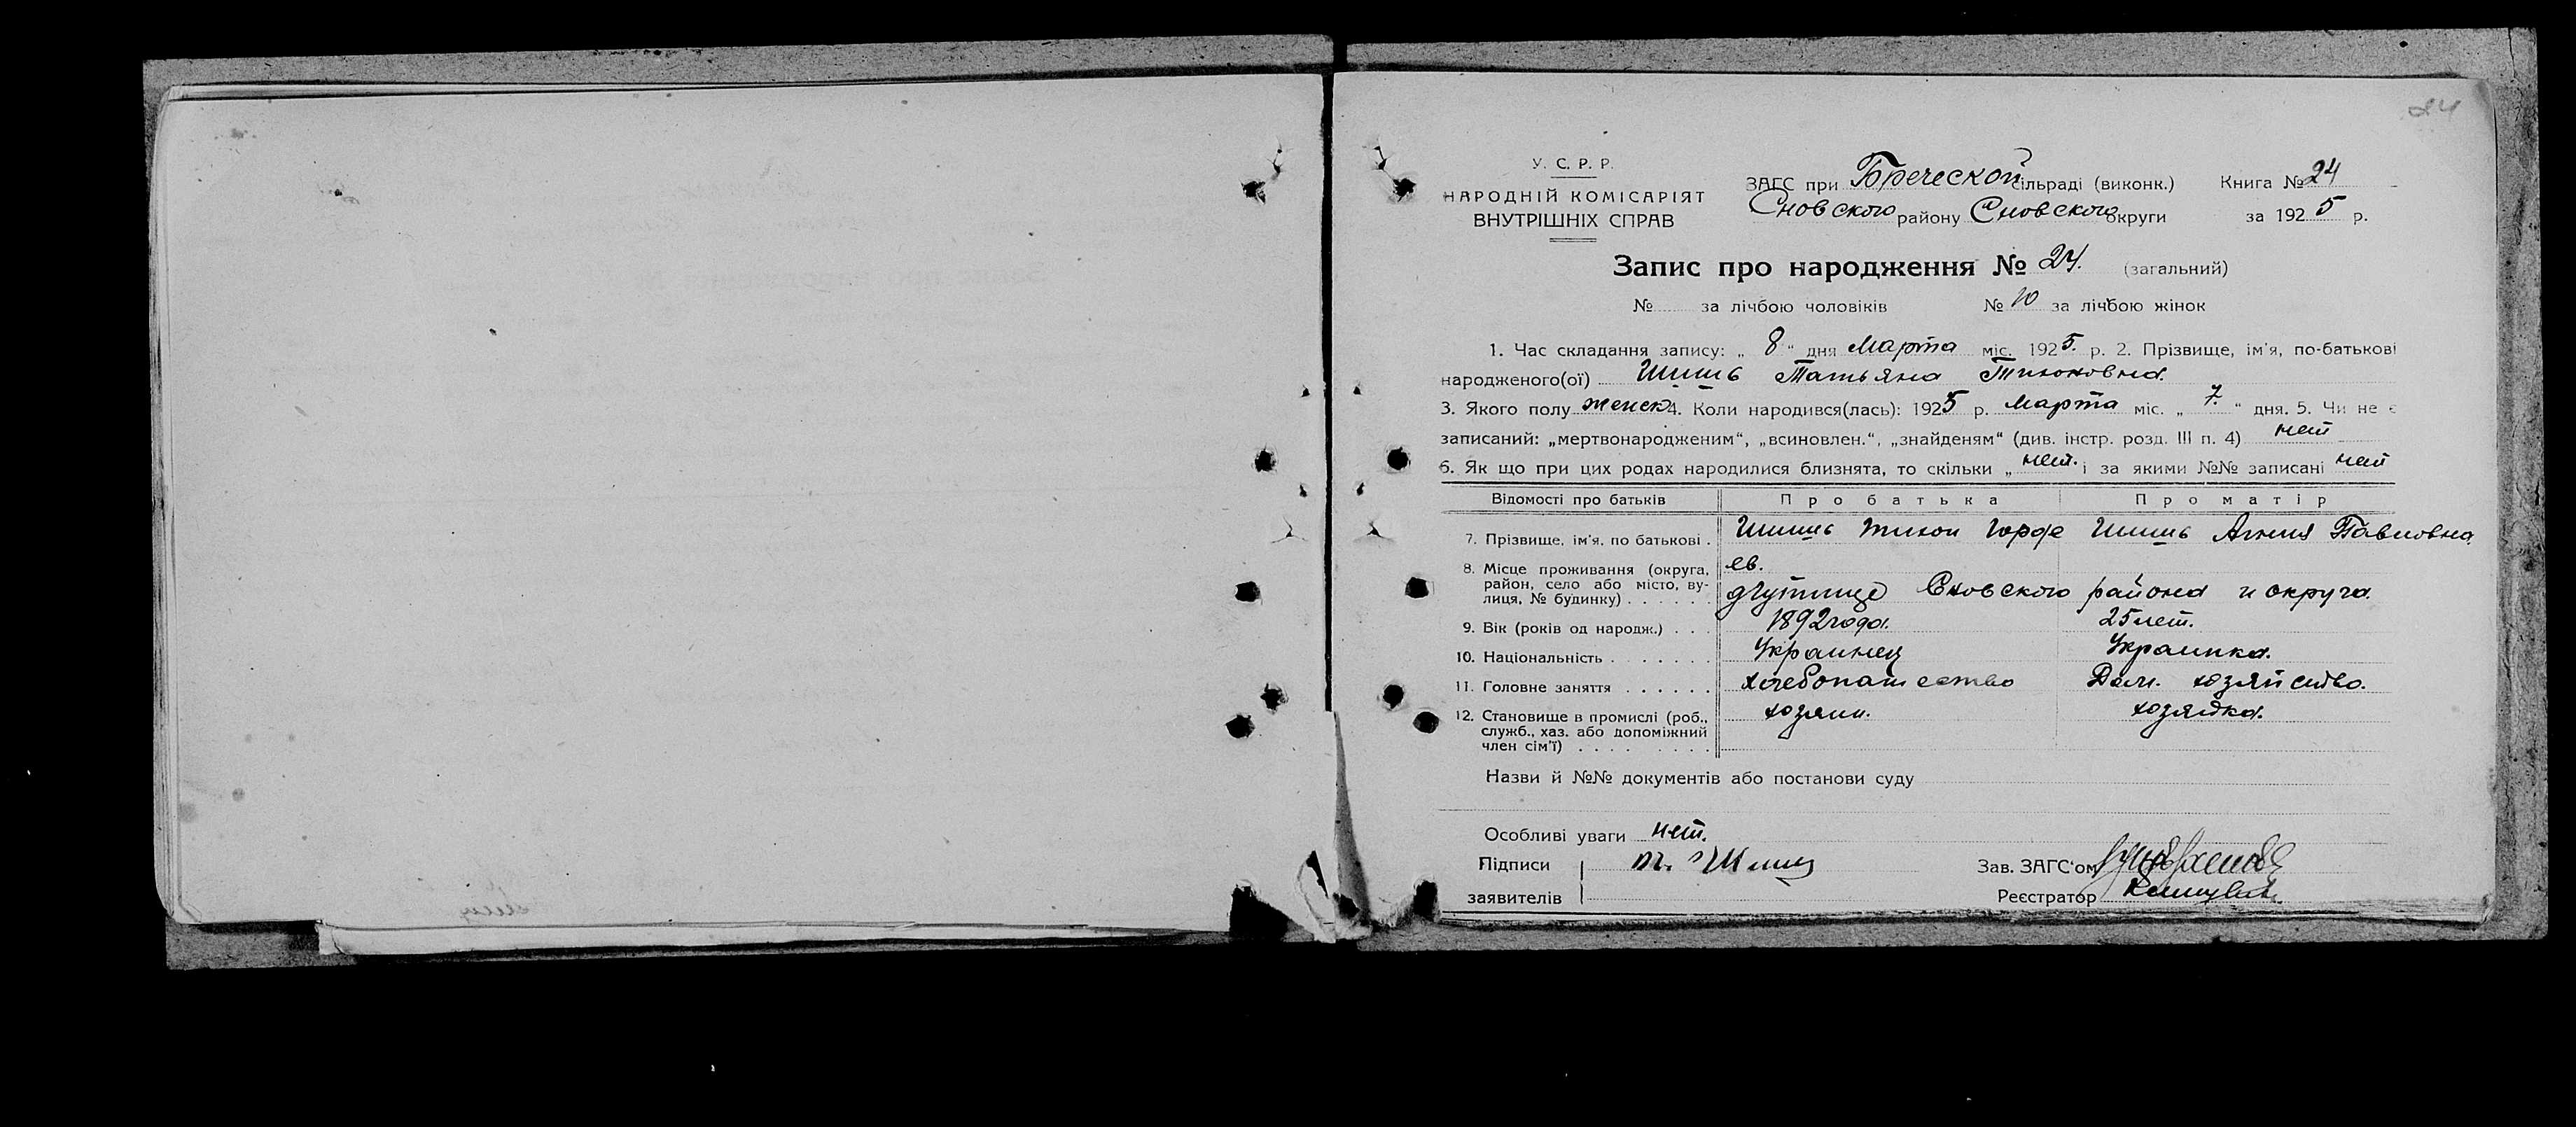 24
У. С. Р. Р.
НАРОДНІЙ КОМІСАРІЯТ
ВНУТРІШНІХ СПРАВ
ЗАГС при Бреческой сільраді (виконк.) Книга № 24
Сновского району Сновского округи за 1925 р.
Запис про народження № 24. (загальний)
№ за лічбою чоловіків № 10 за лічбою жінок
1. Час складання запису: „ 8 “ дня Марта міс. 1925. р. 2. Прізвище, ім'я, по-батькові
народженого(ої) Шишь Татьяна Тихоновна.
3. Якого полу женск 4. Коли народився(лась): 1925 р. Марта міс. „ 7. “ дня. 5. Чи не є
записаний: „мертвонародженим“, „всиновлен.“, „знайденям“ (див. інстр. розд. III п. 4) нет
6. Як що при цих родах народилися близнята, то скільки „ нет. і за якими №№ записані нет
Відомості про батьків Про батька Про матір
7. Прізвище, ім'я, по батькові . Шишь Тихон Горде Шишь Агния Павловна.
ев.
8. Місце проживання (округа,
район, село або місто, ву-
лиця, № будинку) . . . . . . Сновского района и округа.
9. Вік (років од народж.) . . . 1892 года. 25 лет.
10. Національність . . . . . . . Украинец Украинка.
11. Головне заняття . . . . . . хлебопашество Дом. хозяйство.
12. Становище в промислі (роб.,
служб., хаз. або допоміжний
член сім'ї) . . . . . . . . хозяин. хозяйка.
Назви й №№ документів або постанови суду
Особливі уваги нет.
Підписи Т. Шишь Зав. ЗАГС'ом
заявителів Реєстратор